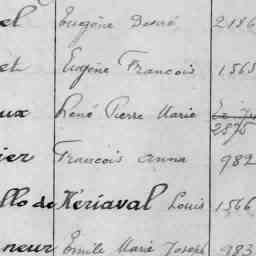 el Eugène Désiré 2186
et Eugène François 1565
ux René Pierre Marie
2875
ier François Anna 982
llo de Kériaval Louis 1566
neur Emile Marie Joseph 983